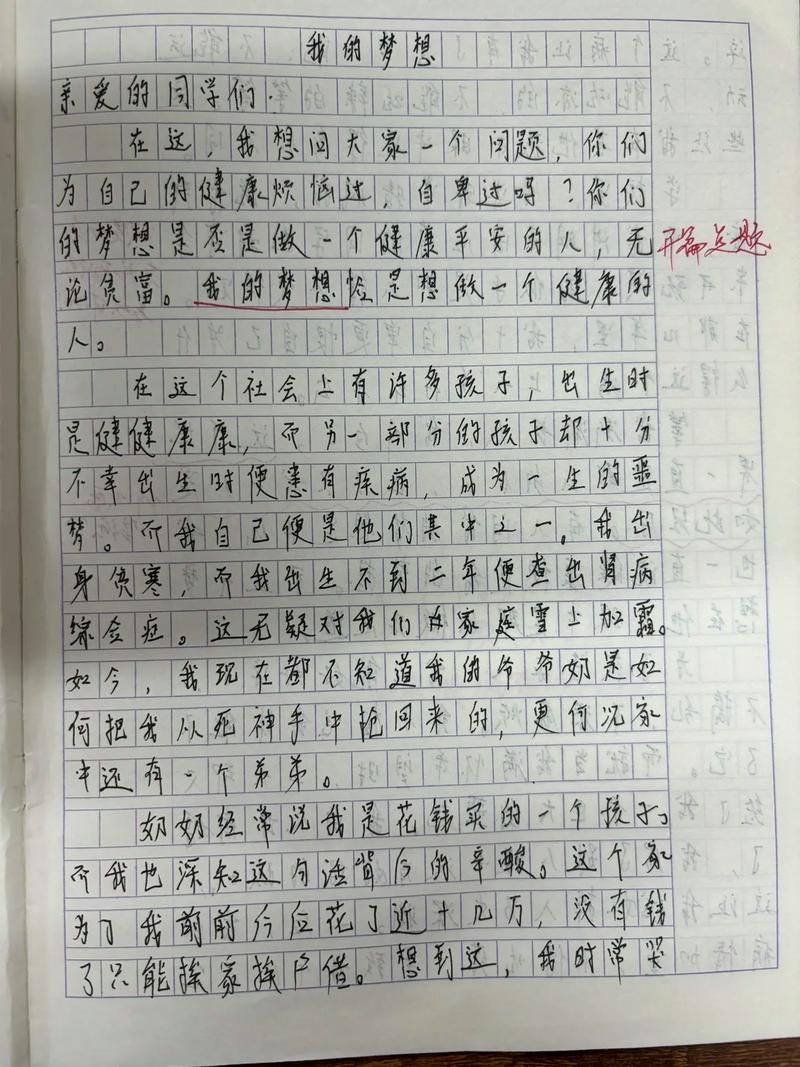 我的梦想
亲爱的同学们.
在这，我想问大家一个问题，你们
为自己的健康烦恼过，自卑过吗？你们
的梦想是否是做一个健康平安的人，无
开篇点题
论贫富。我的梦想恰是想做一个健康的
人。
在这个社会上有许多孩子，出生时
是健健康康，而另一部分的孩子却十分
不幸出生时便患有疾病，成为一生的噩
梦。而我自己便是他们其中之一。我出
身贫寒，而我出生不到二年便查出肾病
综合症。这无疑对我们家庭雪上加霜。
如今，我现在都不知道我的爷爷奶是如
何把我从死神手中抢回来的，更何况家
中还有一个弟弟。
奶奶经常说我是花钱买的一个孩子，
而我也深知这句话背后的辛酸。这个家
为了我前前后后花了近十几万，没有钱
了只能挨家挨户借。想到这，我时常哭